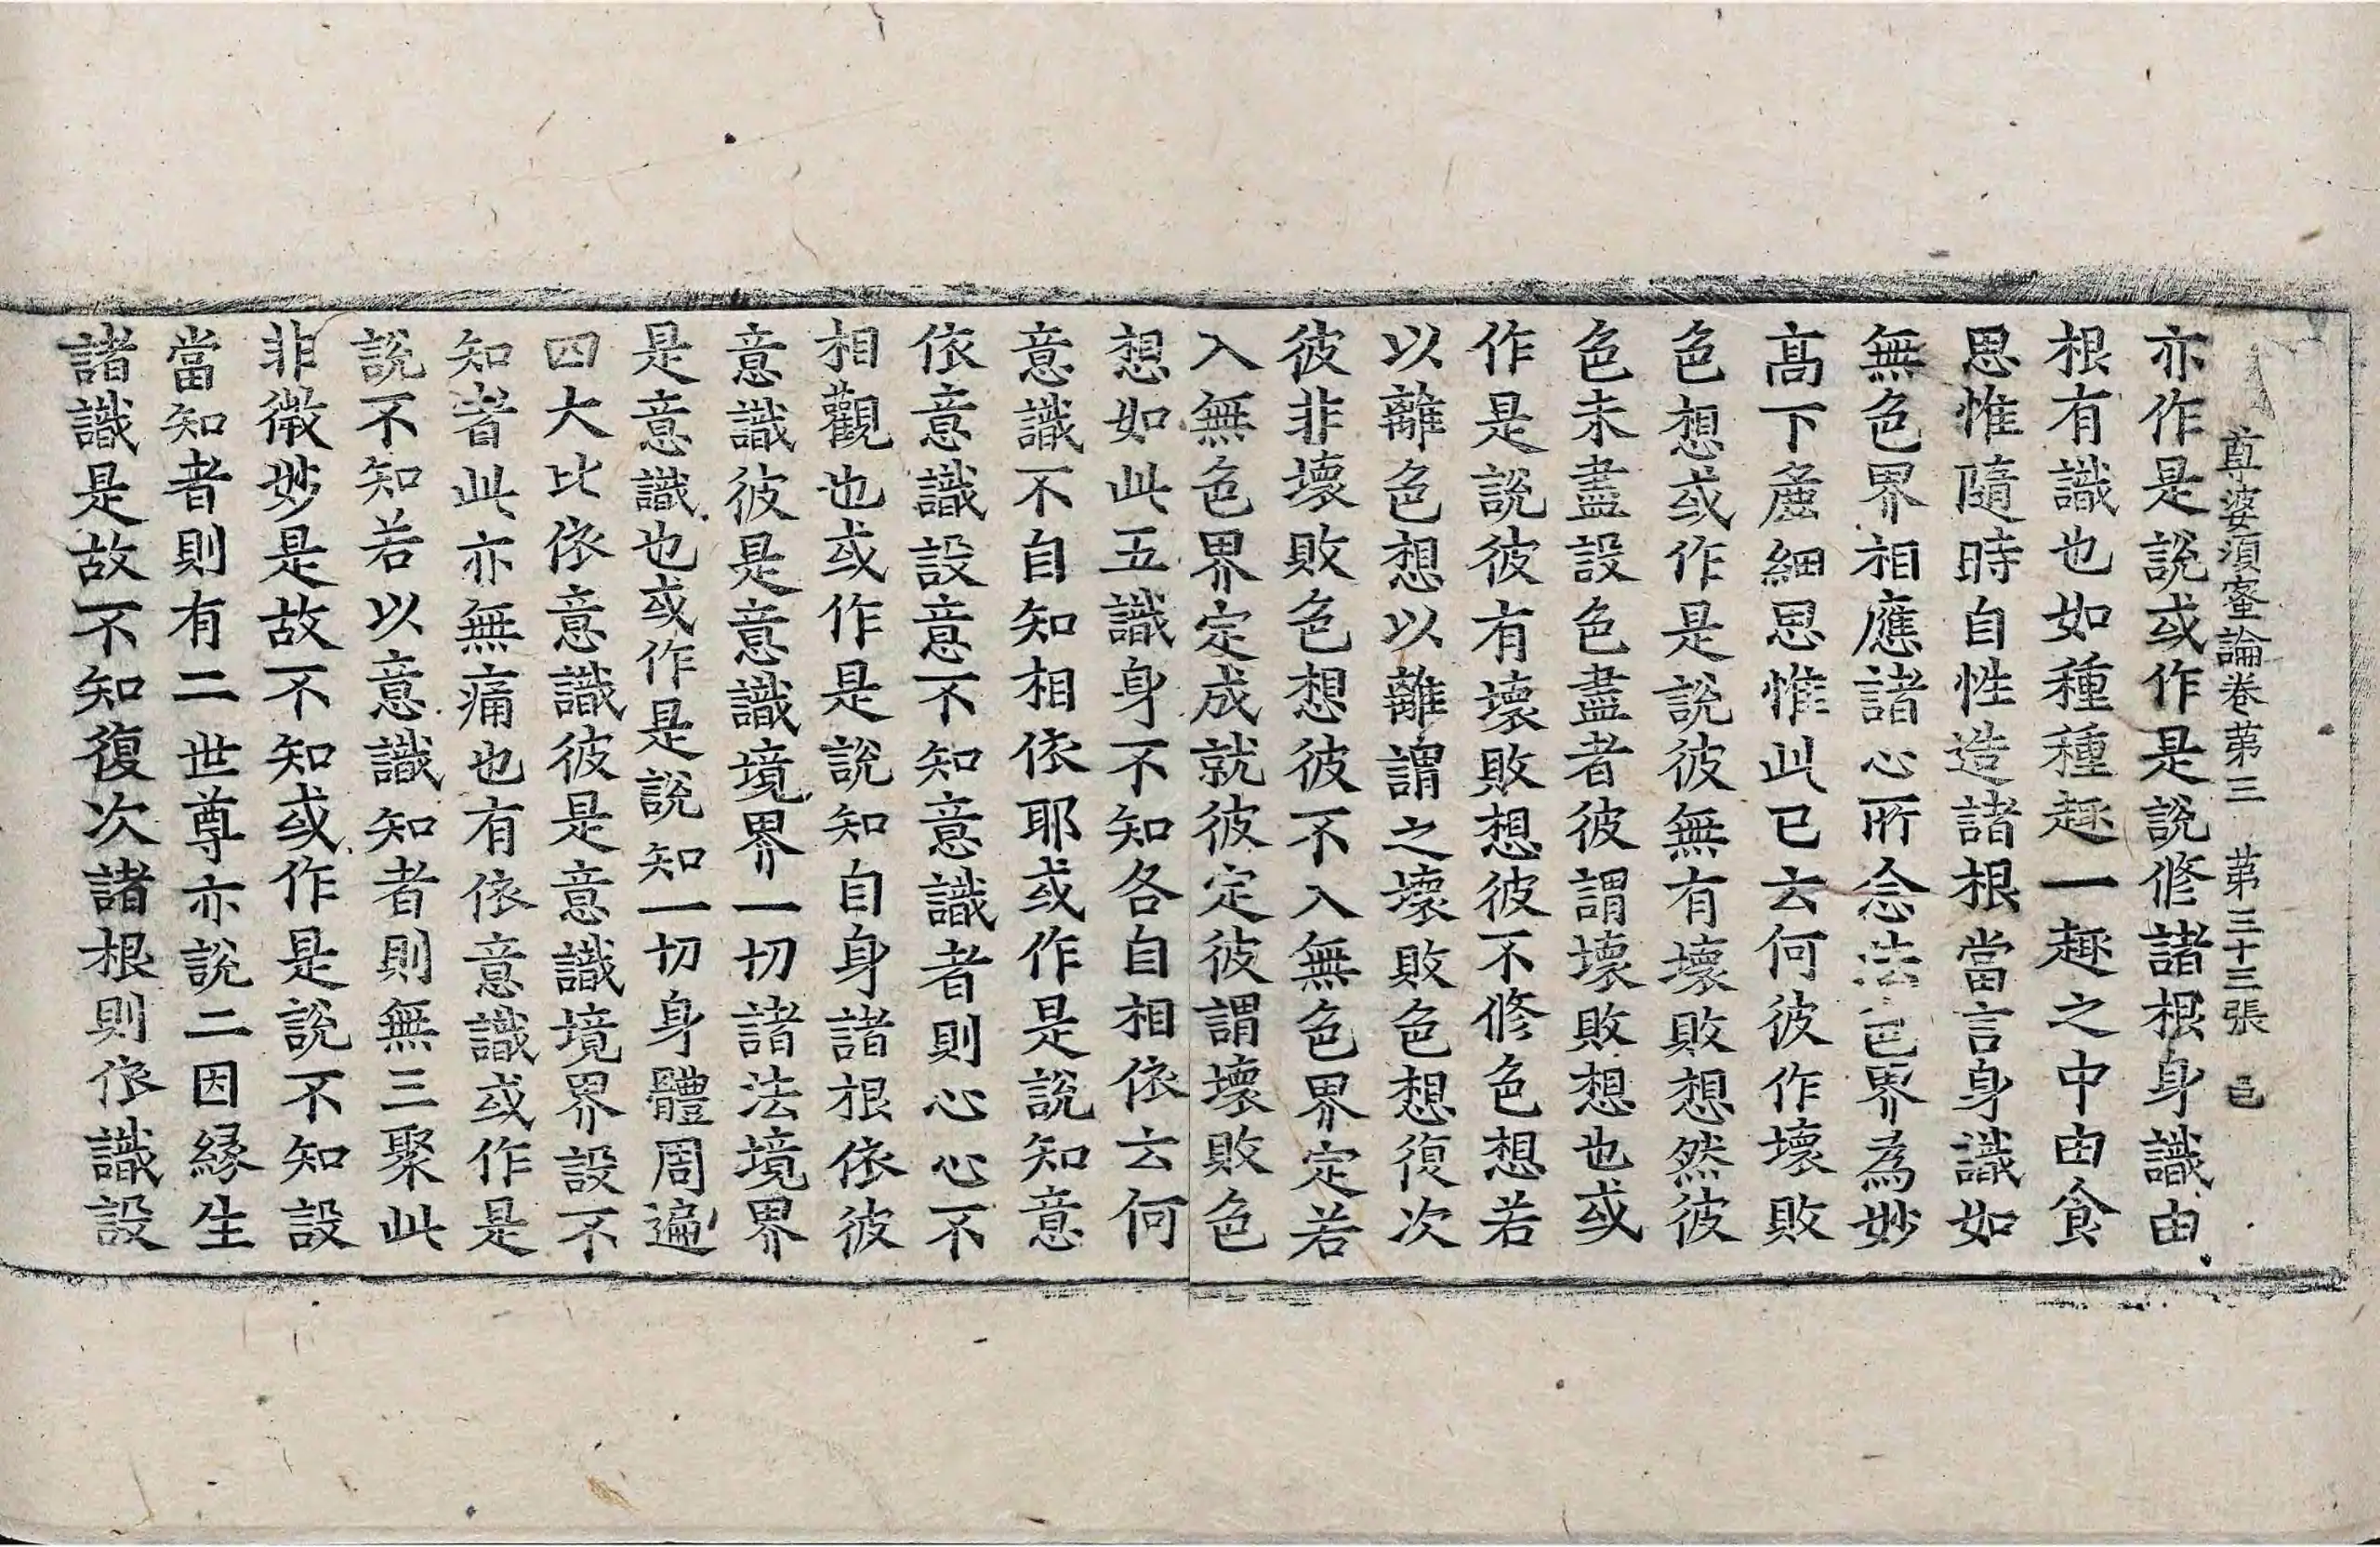 尊婆須蜜論卷苐三 苐三十三張 邑
亦作是說或作是說修諸根身識由
根有識也如種種趣一趣之中由食
思惟隨時自性造諸根當言身識如
無色界相應諸心所念法色界為妙
髙下麁細思惟此已云何彼作壞敗
色想或作是說彼無有壞敗想然彼
色未盡設色盡者彼謂壞敗想也或
作是說彼有壞敗想彼不修色想若
以離色想以離謂之壞敗色想復次
彼非壞敗色想彼不入無色界定若
入無色界定成就彼定彼謂壞敗色
想如此五識身不知各自相依云何
意識不自知相依耶或作是說知意
依意識設意不知意識者則心心不
相觀也或作是說知自身諸根依彼
意識彼是意識境界一切諸法境界
是意識也或作是說知一切身體周遍
四大比依意識彼是意識境界設不
知者此亦無痛也有依意識或作是
說不知若以意識知者則無三聚此
非微妙是故不知或作是說不知設
當知者則有二世尊亦說二因緣生
諸識是故不知復次諸根則依識設